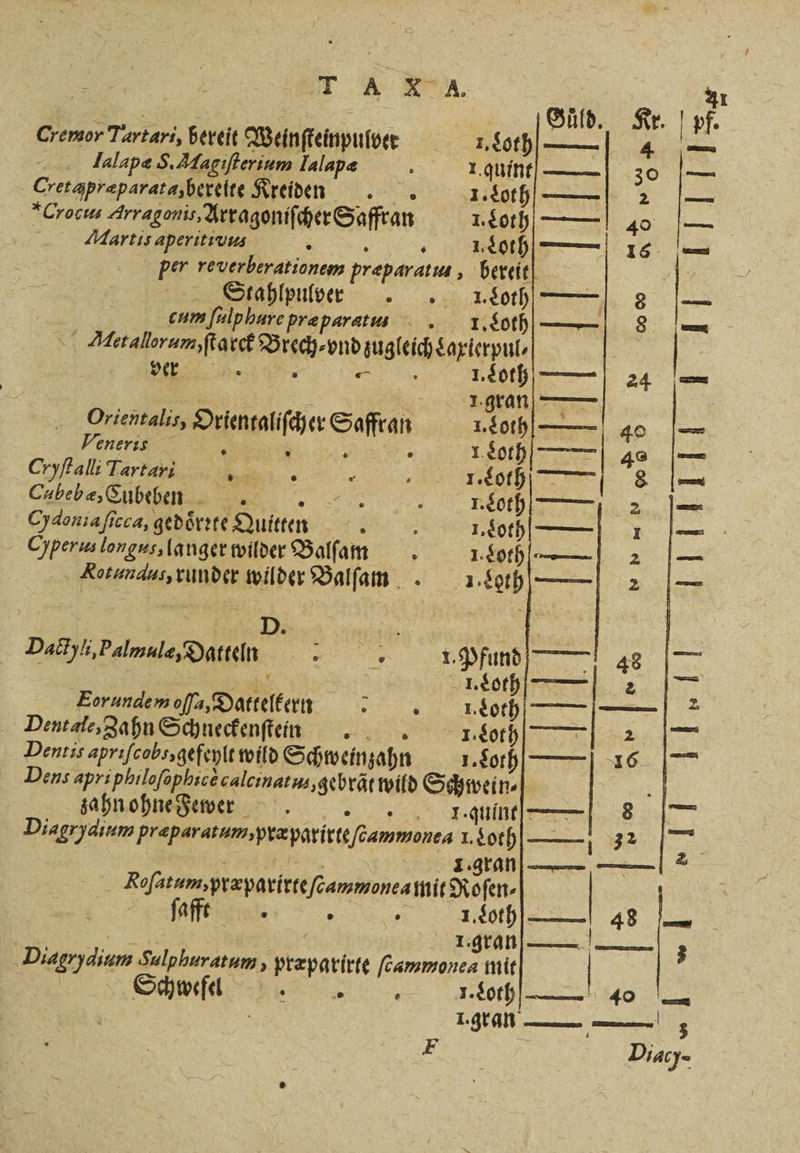 TAXA.
41
Gülb. Kr. pf.
Cremor Tartari, bereit Weinsteinpulver 1.Loth —— 4 —
Ialapæ S. Magisterium Ialapæ . 1.quint —— 30 —
Cretæ præparata, bereite Kreiden . . 1.Loth —— 2 —
*Crocus Arragonis, Arragonischer Saffran 1.Loth —— 40 —
Martis aperitivus . . . 1.Loth —— 16 —
per reverberationem præparatus, bereit
Stahlpulver . . 1.Loth —— 8 —
cum sulphure præparatus . 1.Loth —— 8 —
Metallorum, starck Brech-vnd zugleich Laxierpul-
ver . . . 1.Loth —— 24 —
1.gran ——
Orientalis, Orientalischer Saffran 1.Loth —— 40 —
Veneris . . . . 1.Loth —— 40 —
Crystalli Tartari . . . 1.Loth —— 8 —
Cubebæ, Cubeben . . . 1.Loth —— 2 —
Cydonia sicca, gedörrte Quitten . . 1.Loth —— 1 —
Cyperus longus, langer wilder Balsam . 1.Loth —— 2 —
Rotundus, runder wilder Balsam . . 1.Loth —— 2 —
D.
Dactyli, Palmulæ, Datteln . . 1.Pfund —— 48 —
1.Loth —— 2 —
Eorundem ossa, Dattelkern . . 1.Loth —— —— 2
Dentale, Zahn Schneckenstein . . 1.Loth —— 2 —
Dentis apri scobs, gefeylt wild Schweinzahn 1.Loth —— 16 —
Dens apri philosophicè calcinatus, gebrät wild Schwein-
zahn ohne Fewer . . . 1.quint —— 8 —
Diagrydium præparatum, præparirte scammonea 1.Loth —— 32 —
1.gran —— —— 2
Rosatum, præparirte scammonea mit Rosen-
safft . . . 1.Loth —— 48 —
1.gran —— —— 3
Diagrydium Sulphuratum, præparirte scammonea mit
Schwefel . . . 1.Loth —— 40 —
1.gran —— —— 3
F Diacy-